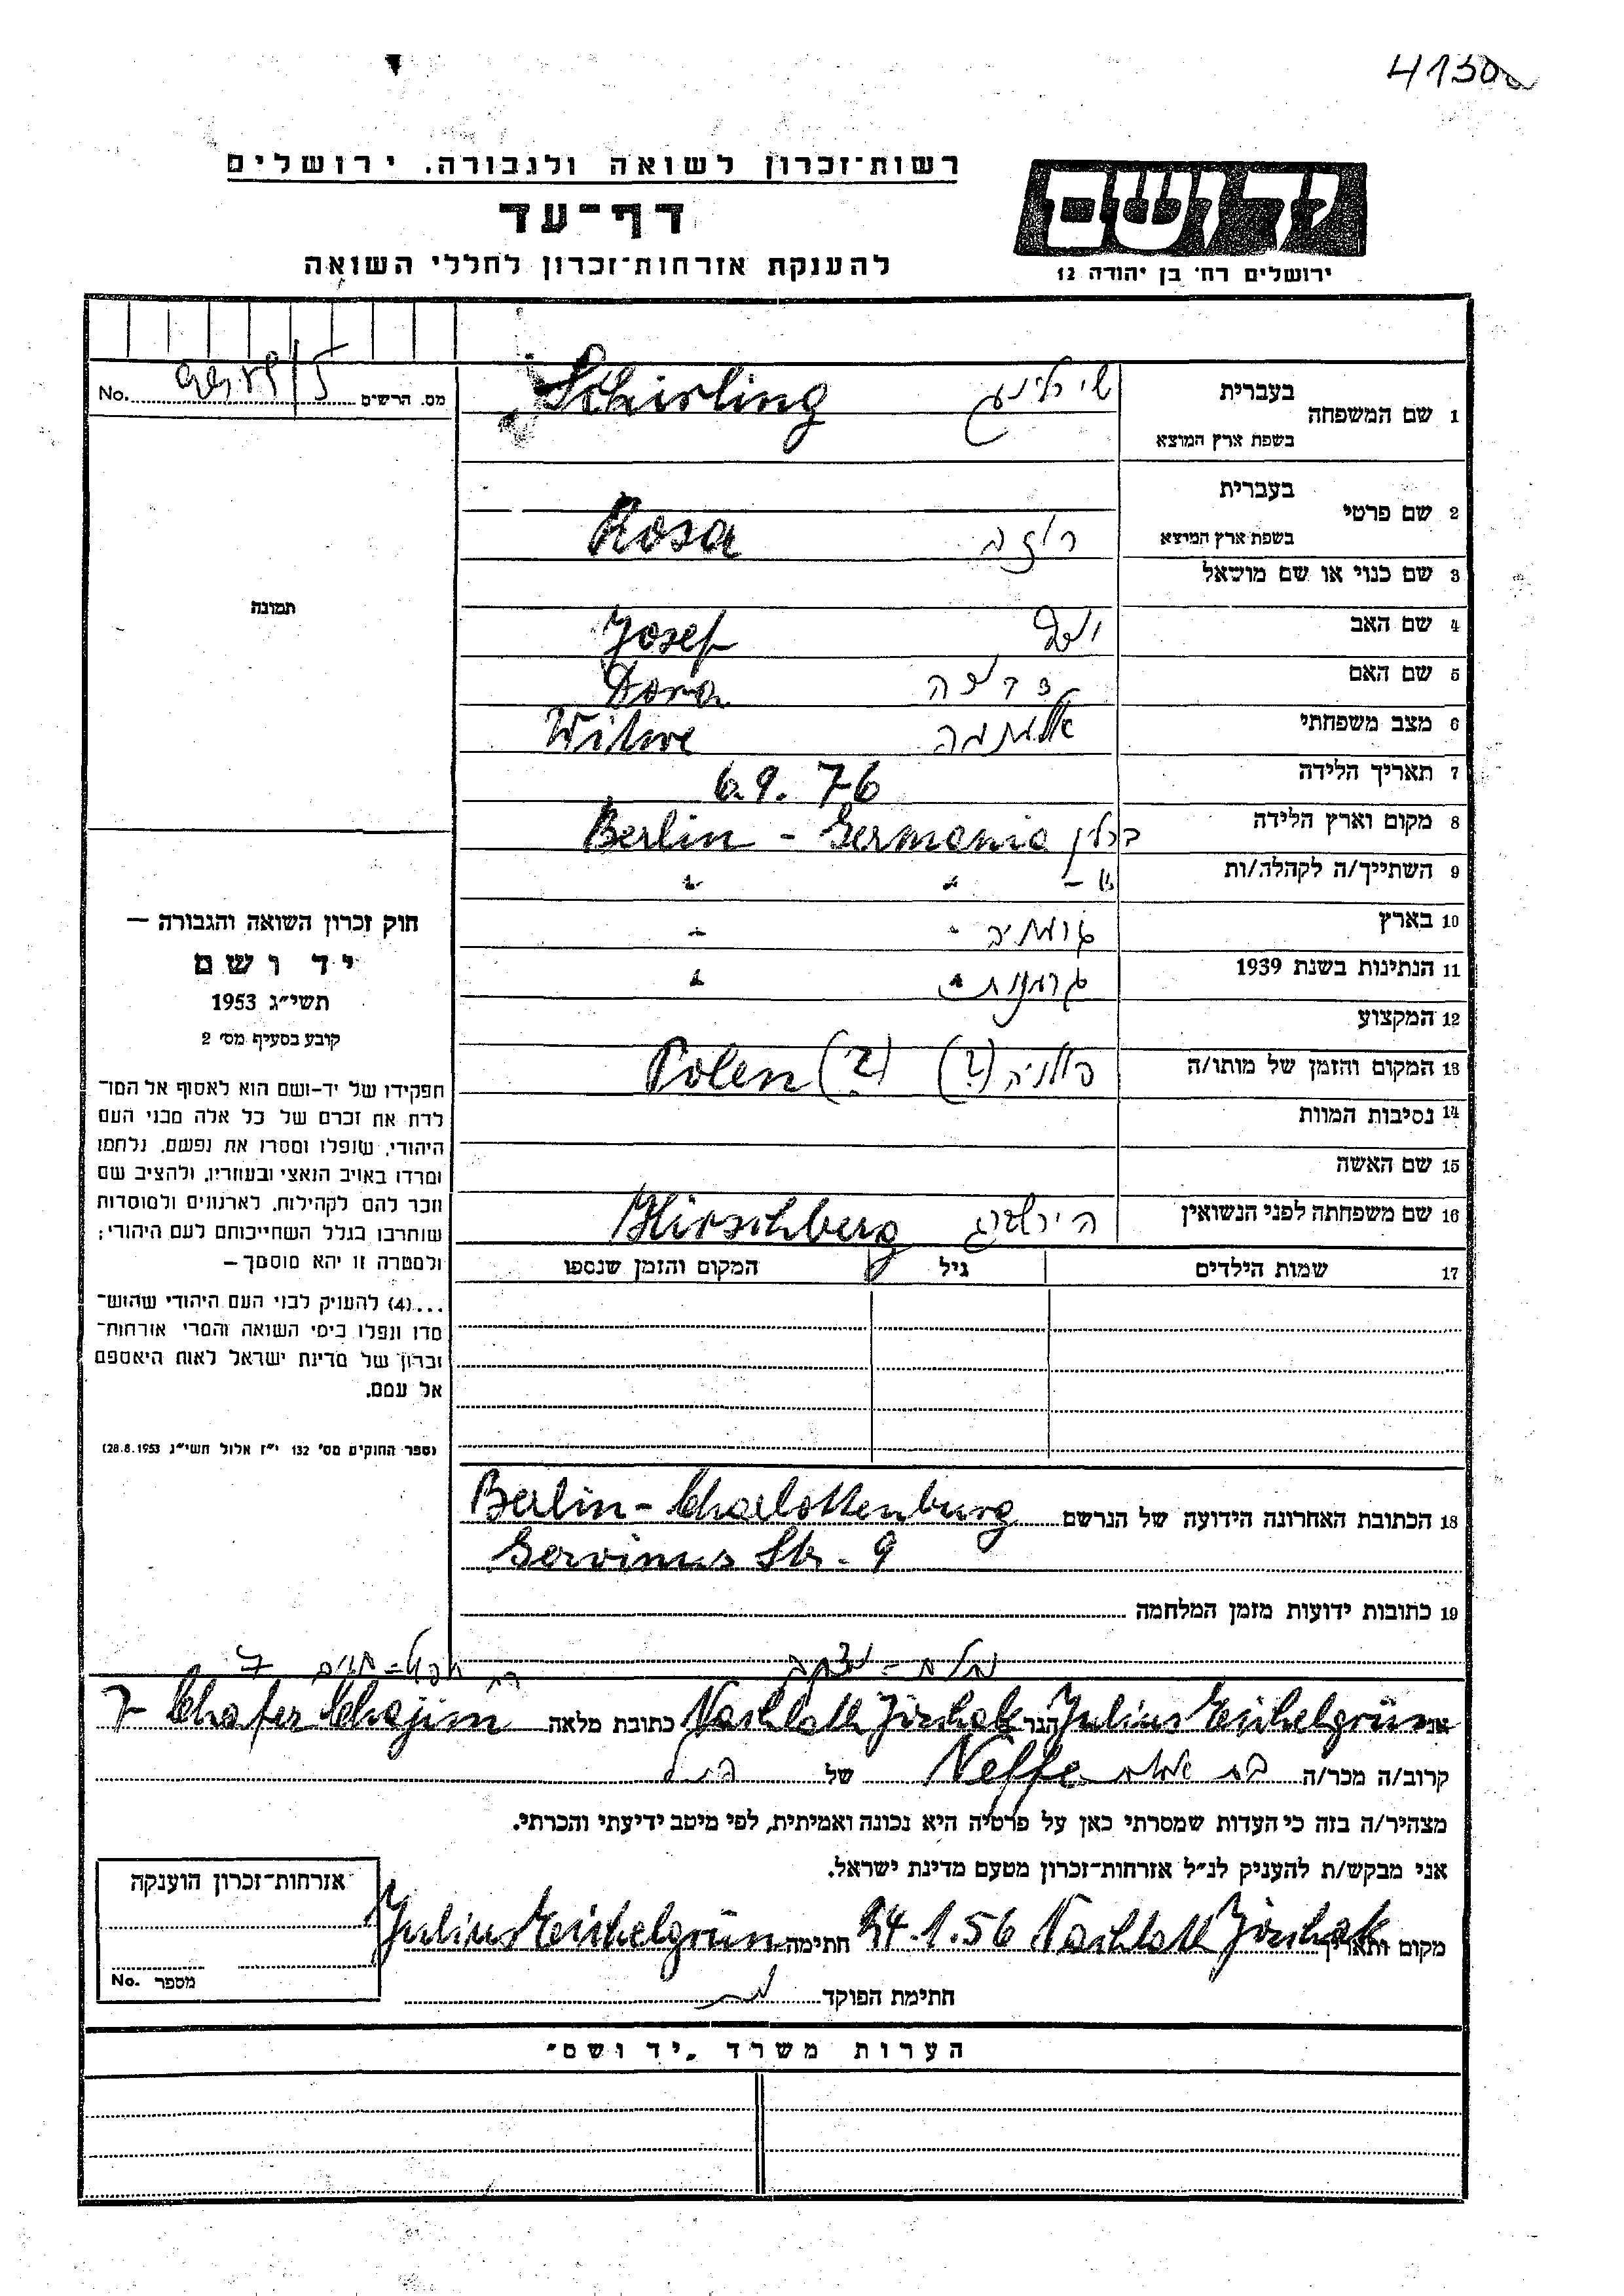 רשות־זכרון לשואה ולגבורה. ירושלים
יד ושם
דף־עד
להענקת אזרחות־זכרון לחללי השואה
ירושלים רח׳ בן יהודה 12
No. מס. הרשים
1 שם המשפחה בעברית שירלינג Schirling
בשפת ארץ המוצא
2 שם פרטי בעברית
בשפת ארץ המוצא רוזה Rosa
3 שם כנוי או שם מושאל
4 שם האב יוסף Josef
5 שם האם Dora
6 מצב משפחתי אלמנה Witwe
7 תאריך הלידה 6.9.76
8 מקום וארץ הלידה ברלין Berlin - Germania
9 השתייך/ה לקהלה/ות
10 בארץ
11 הנתינות בשנת 1939
12 המקצוע
13 המקום והזמן של מותו/ה פולניה (?) Polen (?)
14 נסיבות המוות
15 שם האשה
16 שם משפחתה לפני הנשואין הירשברג Hirschberg
17 שמות הילדים גיל המקום והזמן שנספו
תמונה
חוק זכרון השואה והגבורה —
יד ושם
תשי״ג 1953
קובע בסעיף מס׳ 2
תפקידו של יד-ושם הוא לאסוף אל המו־
לדת את זכרם של כל אלה מבני העם
היהודי, שנפלו ומסרו את נפשם, נלחמו
ומרדו באויב הנאצי ובעוזריו, ולהציב שם
וזכר להם לקהילות, לארגונים ולמוסדות
שנחרבו בגלל השתייכותם לעם היהודי;
ולמטרה זו יהא מוסמך —
...(4) להעניק לבני העם היהודי שהוש־
מדו ונפלו בימי השואה והמרי אזרחות־
זכרון של מדינת ישראל לאות היאספם
אל עמם.
(ספר החוקים מס׳ 132 י״ז אלול תשי״ג 28.8.1953)
18 הכתובת האחרונה הידועה של הנרשם Berlin - Charlottenburg
Gervinus Str. 9
19 כתובות ידועות מזמן המלחמה
אני Julius Eichelgrün הגר Nachlath Jizchak כתובת מלאה Chafez Chajim 7
קרוב/ה מכר/ה Neffe של
מצהיר/ה בזה כי העדות שמסרתי כאן על פרטיה היא נכונה ואמיתית, לפי מיטב ידיעתי והכרתי.
אני מבקש/ת להעניק לנ״ל אזרחות־זכרון מטעם מדינת ישראל.
מקום ותאריך Nachlath Jizchak 24.1.56 חתימה Julius Eichelgrün
חתימת הפוקד
אזרחות־זכרון הוענקה
מספר No.
הערות משרד „יד ושם״